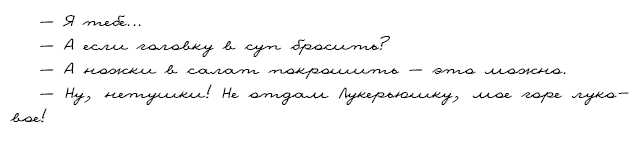 — Я тебе...
— А если головку в суп бросить?
— А ножки в салат покрошить — это можно.
— Ну, нетушки! Не отдам Лукерьюшку, мое горе луко-
вое!